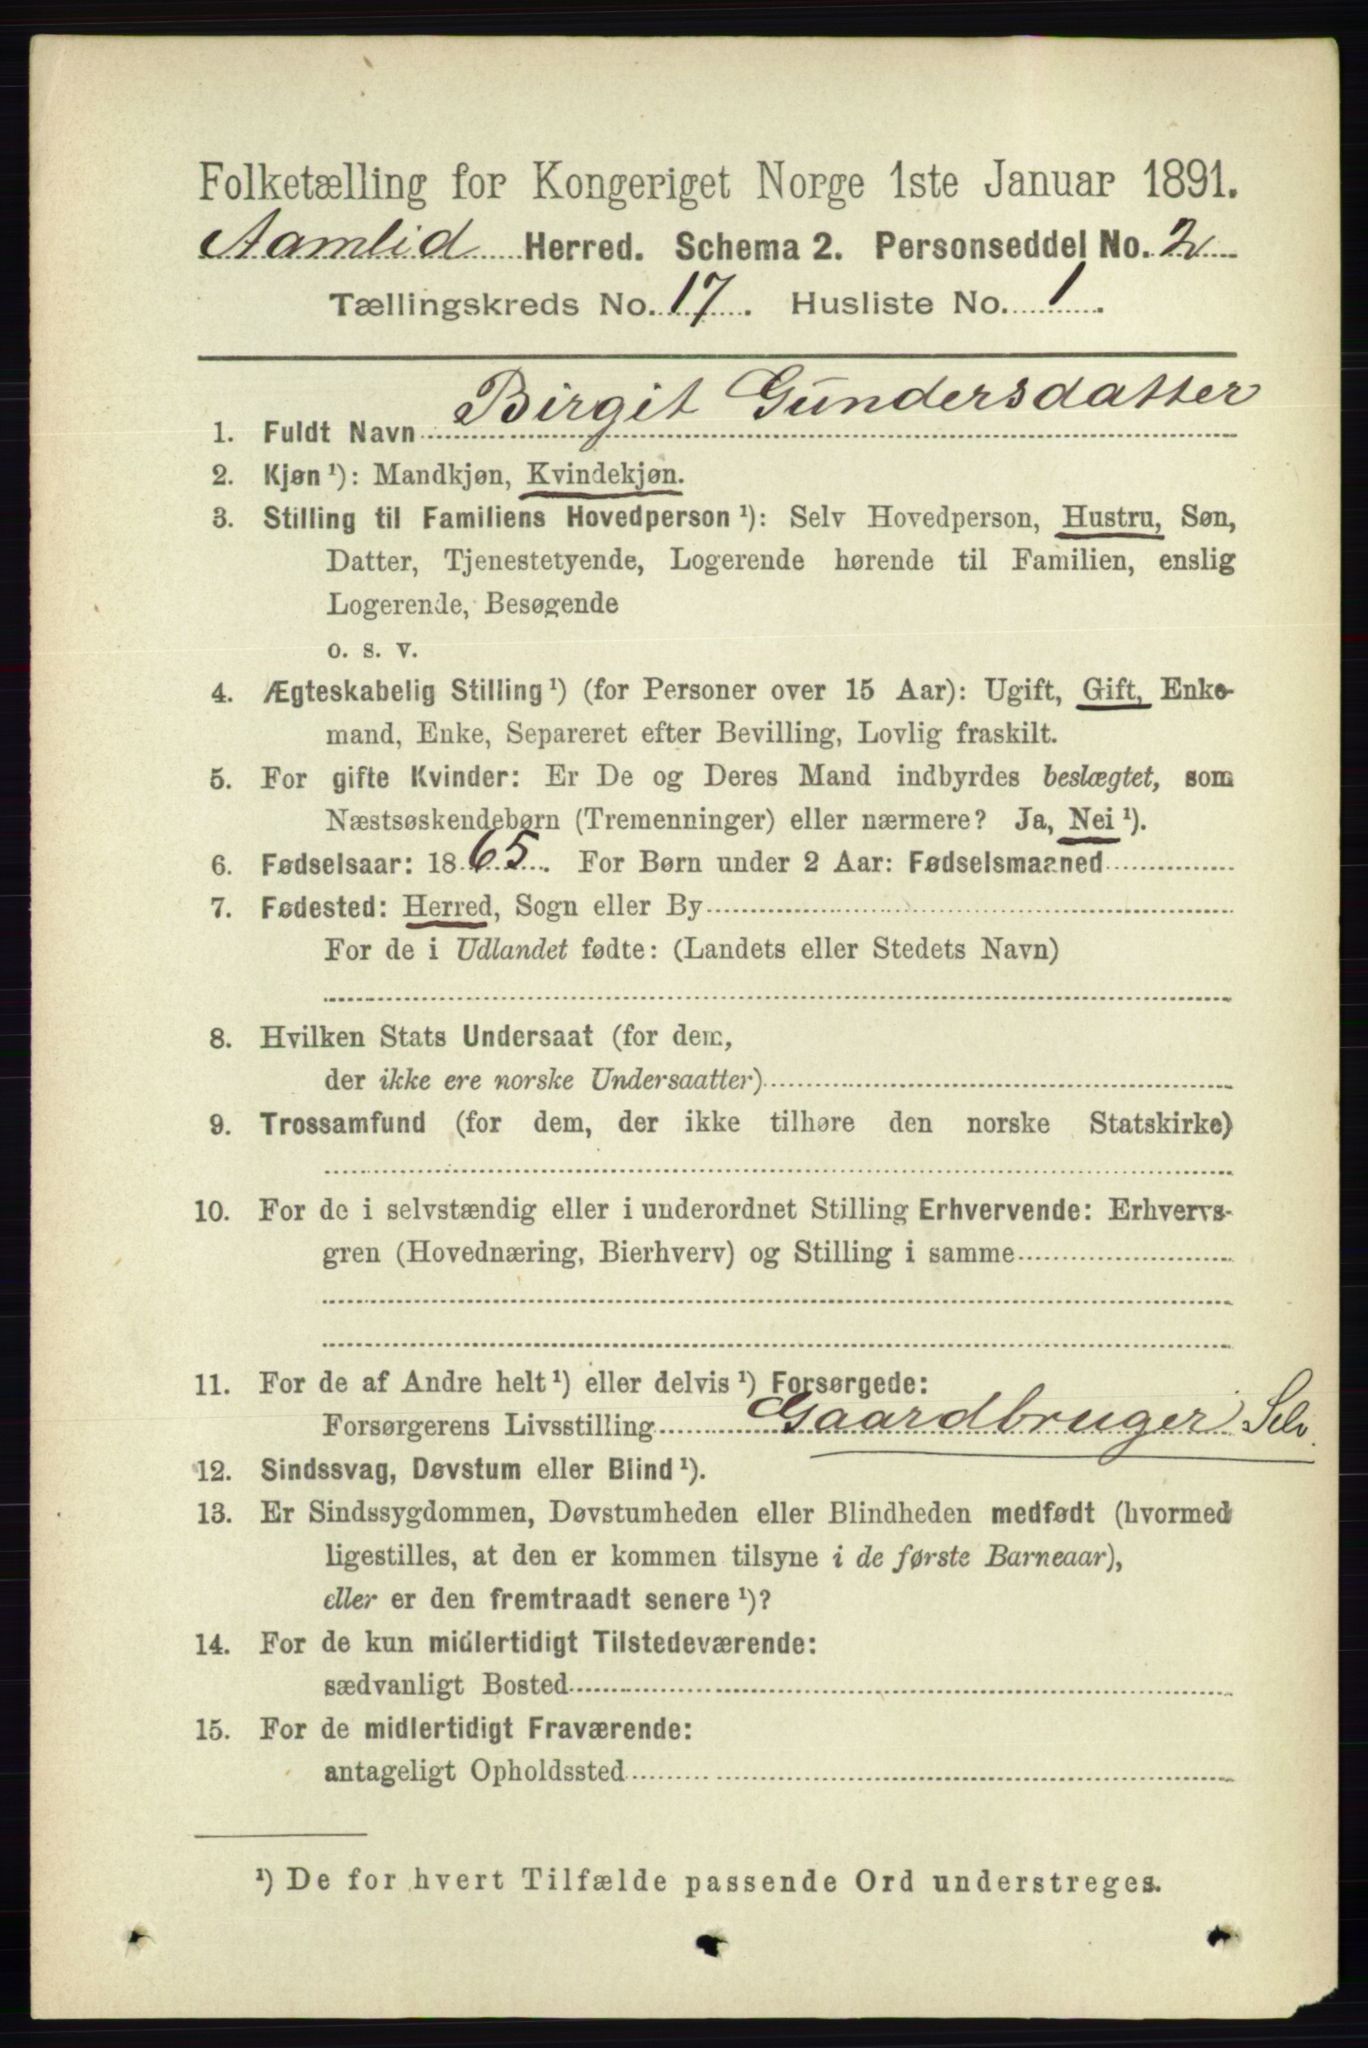 Folketælling for Kongeriget Norge 1ste Januar 1891.
Aamlid Herred. Schema 2. Personseddel No. 2
Tællingskreds No. 17. Husliste No. 1.
1. Fuldt Navn Birgit Gundersdatter
2. Kjøn ¹): Mandkjøn, Kvindekjøn.
3. Stilling til Familiens Hovedperson ¹): Selv Hovedperson, Hustru, Søn,
Datter, Tjenestetyende, Logerende hørende til Familien, enslig
Logerende, Besøgende
o. s. v.
4. Ægteskabelig Stilling ¹) (for Personer over 15 Aar): Ugift, Gift, Enke-
mand, Enke, Separeret efter Bevilling, Lovlig fraskilt.
5. For gifte Kvinder: Er De og Deres Mand indbyrdes beslægtet, som
Næstsøskendebørn (Tremenninger) eller nærmere? Ja, Nei ¹).
6. Fødselsaar: 1865. For Børn under 2 Aar: Fødselsmaaned
7. Fødested: Herred, Sogn eller By
For de i Udlandet fødte: (Landets eller Stedets Navn)
8. Hvilken Stats Undersaat (for dem,
der ikke ere norske Undersaatter)
9. Trossamfund (for dem, der ikke tilhøre den norske Statskirke)
10. For de i selvstændig eller i underordnet Stilling Erhvervende: Erhvervs-
gren (Hovednæring, Bierhverv) og Stilling i samme
11. For de af Andre helt ¹) eller delvis ¹) Forsørgede:
Forsørgerens Livsstilling Gaardbruger Selv
12. Sindssvag, Døvstum eller Blind ¹).
13. Er Sindssygdommen, Døvstumheden eller Blindheden medfødt (hvormed
ligestilles, at den er kommen tilsyne i de første Barneaar),
eller er den fremtraadt senere ¹)?
14. For de kun midlertidigt Tilstedeværende:
sædvanligt Bosted
15. For de midlertidigt Fraværende:
antageligt Opholdssted
¹) De for hvert Tilfælde passende Ord understreges.